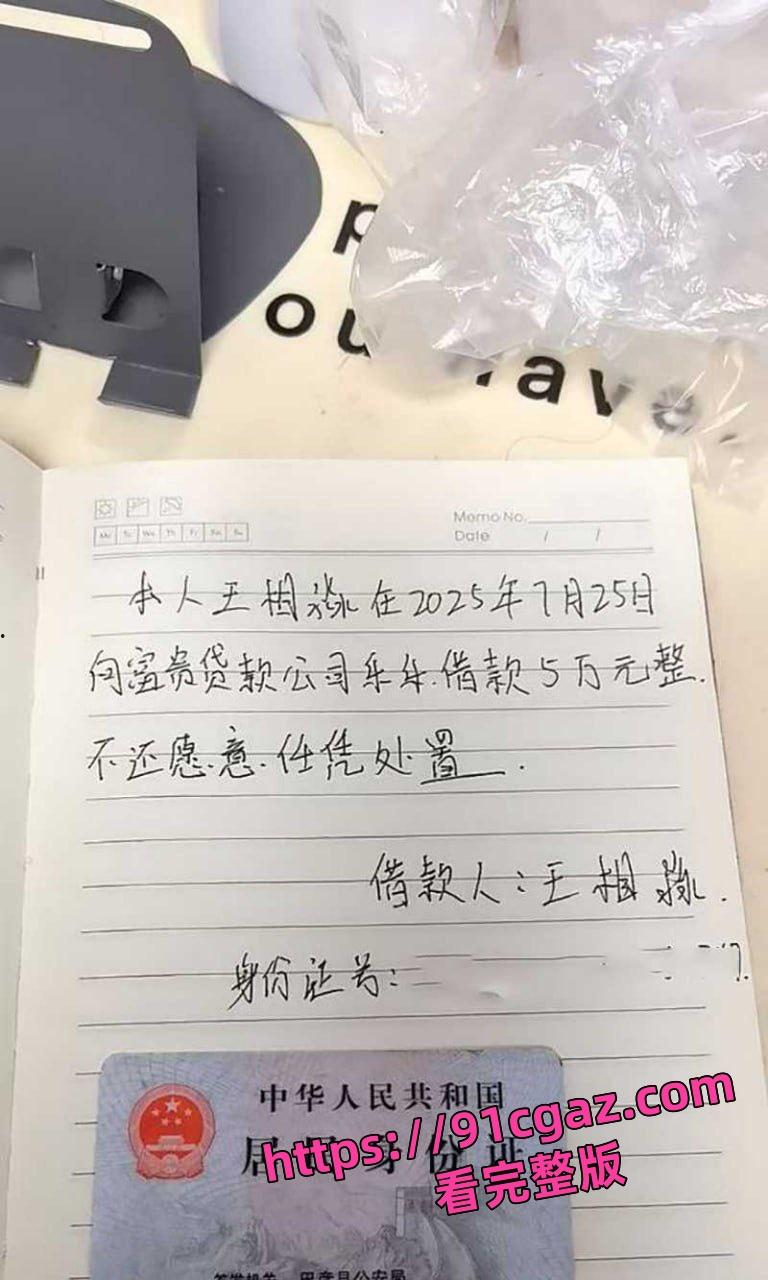 p
ou have
Memo No.
Date / /
Mo Tu We Th Fr Sa Su
本人王相淼在2025年7月25日
向富贵贷款公司乐乐.借款5万元整.
不还愿意.任凭处置.
借款人:王相淼.
身份证号:
中华人民共和国
居民身份证
https://91cgaz.com
看完整版
签发机关
县公安局